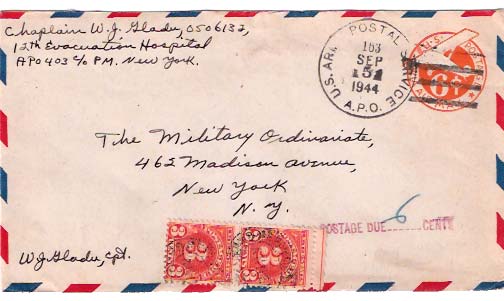 Chaplain W.J. Gladu, O506132,
12th Evacuation Hospital
APO 403 c/o PM. New York.
U.S. ARMY POSTAL SERVICE
A.P.O.
163
SEP
1944
U.S. POSTAGE
6¢
AIR MAIL
The Military Ordinariate,
462 Madison Avenue,
New York
N. Y.
POSTAGE DUE 6 CENTS
W J Gladu, Cpt.
3
3